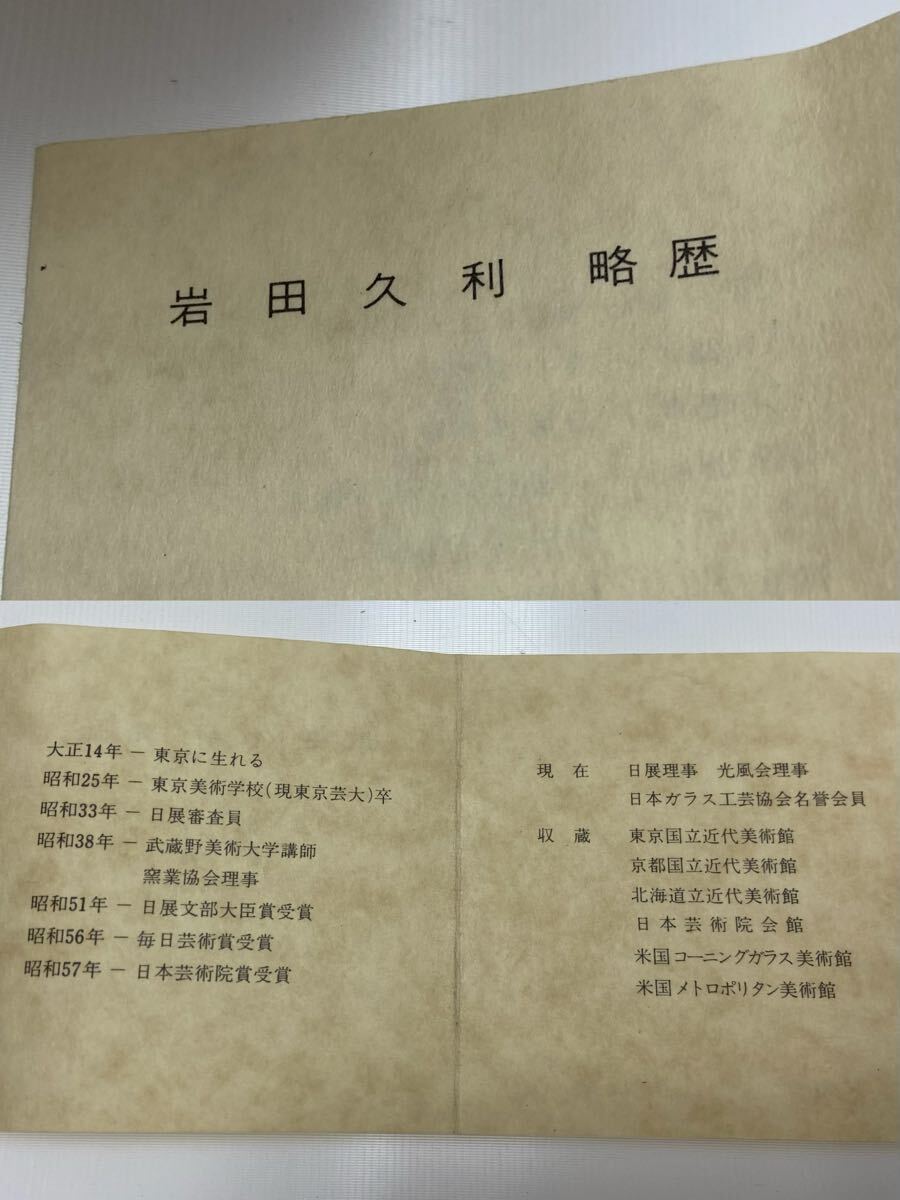 岩田久利 略歴
大正14年 － 東京に生れる
昭和25年 － 東京美術学校(現東京芸大)卒
昭和33年 － 日展審査員
昭和38年 － 武蔵野美術大学講師
窯業協会理事
昭和51年 － 日展文部大臣賞受賞
昭和56年 － 毎日芸術賞受賞
昭和57年 － 日本芸術院賞受賞
現在 日展理事 光風会理事
日本ガラス工芸協会名誉会員
収蔵 東京国立近代美術館
京都国立近代美術館
北海道立近代美術館
日本芸術院会館
米国コーニングガラス美術館
米国メトロポリタン美術館